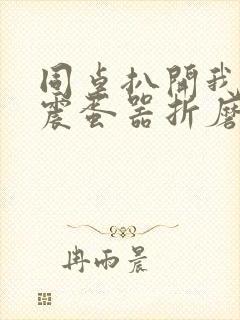 同桌扒開我
震蛋器折磨
冉雨晨